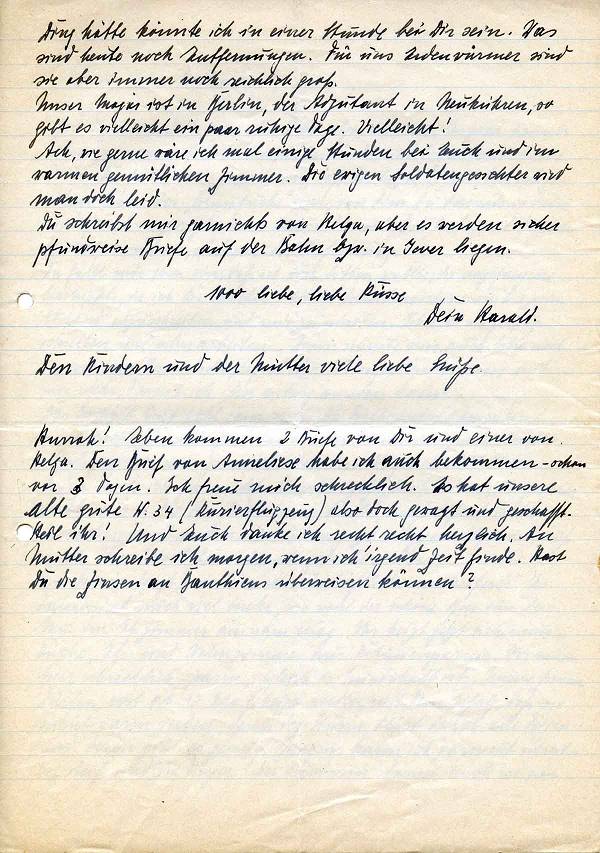 Ding hätte könnte ich in einer Stunde bei Dir sein. Das
sind heute noch Entfernungen. Für uns Erdenwürmer sind
sie aber immer noch reichlich groß.
Unser Major ist in Berlin, der Adjutant in Neukuhren, so
gibt es vielleicht ein paar ruhige Tage. Vielleicht!
Ach, wie gerne wäre ich mal einige Stunden bei Euch und im
warmen gemütlichen Zimmer. Die ewigen Soldatengesichter wird
man doch leid.
Du schreibst mir garnichts von Helga, aber es werden sicher
pfundweise Briefe auf der Bahn bzw. in Jever liegen.
1000 liebe, liebe Küsse
Dein Harald.
Den Kindern und der Mutter viele liebe Grüße.
Hurrah! Eben kommen 2 Briefe von Dir und einer von
Helga. Den Brief von Anneliese habe ich auch bekommen - schon
vor 3 Tagen. Ich freue mich schrecklich. Es hat unsere
alte gute W.34 (Kurierflugzeug) also doch gewagt und geschafft.
Heil ihr! Und Euch danke ich recht recht herzlich. An
Mutter schreibe ich morgen, wenn ich irgend Zeit finde. Hast
Du die Zinsen an überweisen können?